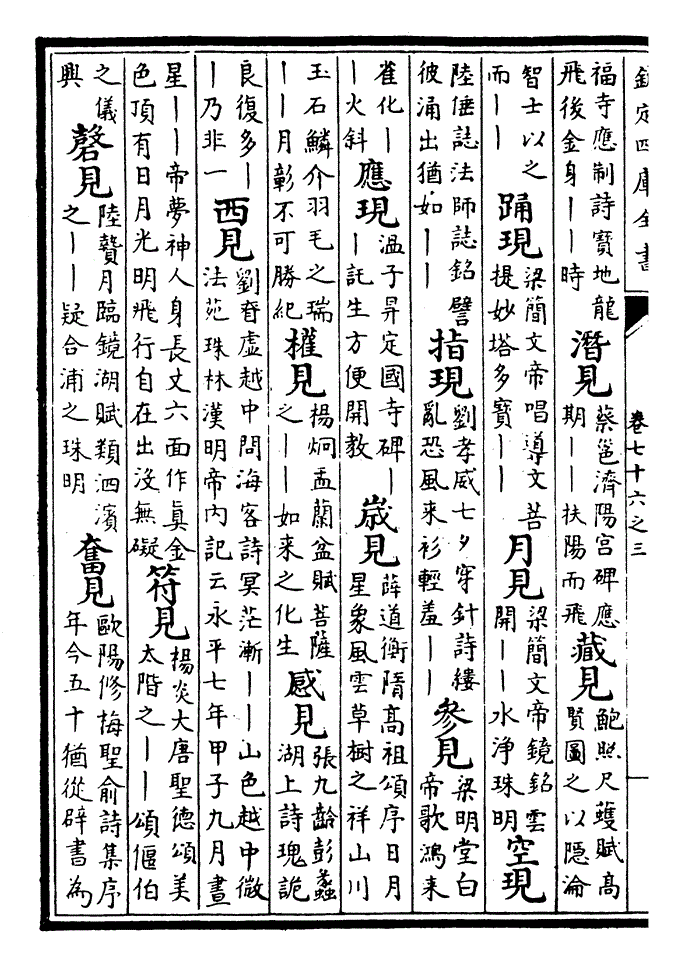 欽定四庫全書 卷七十六之三
福寺應制詩寶地龍飛後金身丨丨時潛見蔡邕濟陽宮碑應期丨丨扶陽而飛藏見鮑照尺蠖賦高賢圖之以隱淪
智士以之而丨丨踊現梁簡文帝唱導文菩提妙塔多寶丨丨月見梁簡文帝鏡銘雲開丨丨水淨珠明空現
陸倕誌法師誌銘譬彼涌出猶如丨丨指現劉孝威七夕穿針詩縷亂恐風來衫輕羞丨丨參見梁明堂白帝歌鴻來
雀化丨丨火斜應現温子昇定國寺碑丨丨託生方便開教嵗見薛道衡隋高祖頌序日月星象風雲草樹之祥山川
玉石鱗介羽毛之瑞丨丨月彰不可勝紀權見楊炯盂蘭盆賦菩薩之丨丨如来之化生感見張九齡彭蠡湖上詩瑰詭
良復多丨丨乃非一西見劉眘虛越中問海客詩冥茫漸丨丨山色越中微法苑珠林漢明帝内記云永平七年甲子九月晝
星丨丨帝夢神人身長丈六面作真金色頂有日月光明飛行自在出没無礙符見楊炎大唐聖德頌美太階之丨丨頌偃伯
之儀興磬見陸贄月臨鏡湖賦類泗濱之丨丨疑合浦之珠明奮見歐陽修梅聖俞詩集序年今五十猶從辟書為